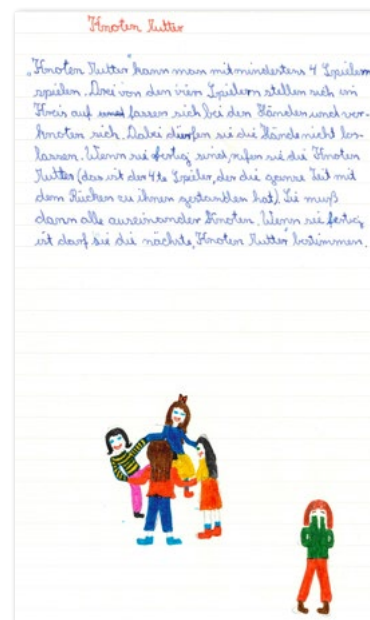 Knoten Mutter
„Knoten Mutter" kann man mit mindestens 4 Spielern
spielen. Drei von den vier Spielern stellen sich im
Kreis auf fassen sich bei den Händen und ver-
knoten sich. Dabei dürfen sie die Hände nicht los-
lassen. Wenn sie fertig sind, rufen sie die Knoten
Mutter (das ist der 4te Spieler, der die ganze Zeit mit
dem Rücken zu ihnen gestanden hat). Sie muß
dann alle auseinander knoten. Wenn sie fertig
ist darf sie die nächste „Knoten Mutter" bestimmen.